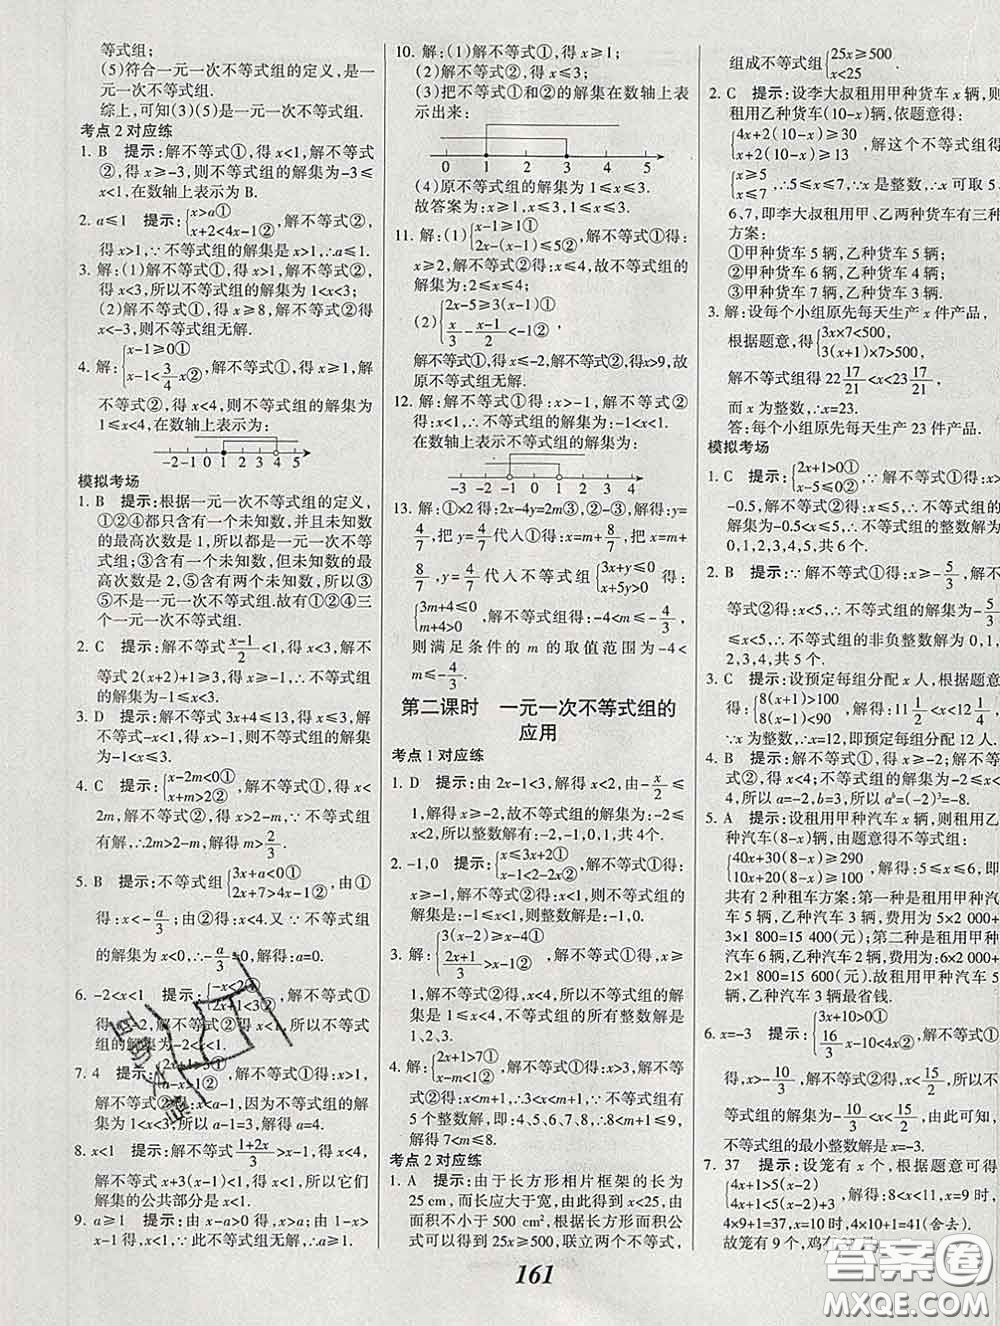 等式组;
(5)符合一元一次不等式组的定义,是一
元一次不等式组.
综上,可知(3)(5)是一元一次不等式组.
考点2对应练
1. B 提示:解不等式①,得x<1,解不等式
②,得x≥-3,则不等式组的解集为-3≤
x<1,在数轴上表示为B.
2. a≤1 提示:{x>a① x+2<4x-1②,解不等式②,
得x>1,∵不等式组的解集是x>1,∴a≤1.
3. 解:(1)解不等式①,得x>1,解不等式②,
得x<3,所以不等式组的解集为1<x<3;
(2)解不等式①得x≥8,解不等式②得
x<-3,则不等式组无解.
4. 解:{x-1≥0① x-1<3/4 x②,解不等式①,得x≥1,解
不等式②,得x<4,则不等式组的解集为
1≤x<4,在数轴上表示为:
-2 -1 0 1 2 3 4 5
模拟考场
1. B 提示:根据一元一次不等式组的定义,
①②④都只含有一个未知数,并且未知数
的最高次数是1,所以都是一元一次不等
式组;③含有一个未知数,但未知数的最
高次数是2,⑤含有两个未知数,所以③
⑤不是一元一次不等式组.故有①②④三
个一元一次不等式组.
2. C 提示:解不等式(x-1)/2<1,得x<3,解不
等式2(x+2)+1≥3,得x≥-1,∴不等式组
的解集为-1≤x<3.
3. D 提示:解不等式3x+4≤13,得x≤3,解
不等式-x<1,得x>-1,则不等式组的解集为
-1<x≤3.
4. C 提示:{x-2m<0① x+m>2②,解不等式①,得x<
2m,解不等式②,得x>2-m,∵不等式组
有解,∴2m>2-m,解得m>2/3.
5. B 提示:不等式组{3x+a<0① 2x+7>4x-1②,由①
得:x<-a/3;由②得:x<4.又∵不等式组
的解集为x<0,∴-a/3=0,解得:a=0.
6. -2<x<1 提示:
2x+1<3②,解不等式①
得 -2,解不等式②得x<1,所以不等式
组的解集为-2<x<1.
7. 4 提示: 解不等式①得:x>1,
解不等式②得:x<a-1,因为不等式组的
解集为1<x<3,所以a-1=3,解得a=4.
8. x<1 提示:解不等式(1+2x)/3>x-1,得x<4,
解不等式x+3(x-1)<1,得x<1,所以它们
解集的公共部分是x<1.
9. a≥1 提示:由x-a>0得,x>a;由1-x>
x-1得,x<1.∵此不等式组无解,∴a≥1.
10. 解:(1)解不等式①,得x≥1;
(2)解不等式②,得x≤3;
(3)把不等式①和②的解集在数轴上表
示出来:
0 1 2 3 4 5
(4)原不等式组的解集为1≤x≤3.
故答案为:x≥1,x≤3,1≤x≤3.
11. 解:(1){x-1≥1① 2x-(x-1)≤5②,解不等式①得:
x≥2,解不等式②得:x≤4,故不等式组的
解集为:2≤x≤4;
(2){2x-5≥3(x-1)① x/3-(x-1)/2<-1②,
解不等式①得:x≤-2,解不等式②,得x>9,故
原不等式组无解.
12. 解:解不等式①得:x>-1,解不等式②
得:x≤1,∴不等式组的解集为:-1<x≤1.
在数轴上表示不等式组的解集为:
-3 -2 -1 0 1 2 3 4
13. 解:①×2得:2x-4y=2m③,②-③,解得:y=
4/7,把y=4/7代入①得:x=m+8/7,把x=m+
8/7,y=4/7代入不等式组{3x+y≤0 x+5y>0得:
{3m+4≤0 m+4>0,解不等式组得:-4<m≤-4/3,
则满足条件的m的取值范围为-4<
m≤-4/3.
第二课时 一元一次不等式组的
应用
考点1对应练
1. D 提示:由2x-1<3,解得x<2,由-x/2≤
1,解得x≥-2,故不等式组的解集为:-2≤
x<2,所以整数解有:-2,-1,0,1,共4个.
2. -1,0 提示:{x≤3x+2① x-1<2-2x②,解不等式①得:
x≥-1,解不等式②得:x<1,则不等式组的
解集是:-1≤x<1,则整数解是:-1,0.
3. 解:{3(x-2)≥x-4① (2x+1)/3>x-1②,解不等式①得:x≥
1,解不等式②得,x<4,所以不等式组的解
集是1≤x<4,所以不等式组的所有整数解是
1、2、3.
4. 解:{2x+1>7① x-m<1②,解不等式①得:x>3,解不
等式②得:x<m+1,∴不等式组的解集是
3<x<m+1,∵不等式组{2x+1>7 x-m<1的整数解有
5个整数解,即:4、5、6、7、8,∴8<m+1≤9,
解得7<m≤8.
考点2对应练
1. A 提示:由于长方形相片框架的长为
25 cm,而长应大于宽,由此得到x<25,由
面积不小于500 cm²,根据长方形面积公
式可以得到25x≥500,联立两个不等式,
组成不等式组{25x≥500 x<25.
2. C 提示:设李大叔租用甲种货车x辆,则
租用乙种货车(10-x)辆,依题意得:
{4x+2(10-x)≥30 x+2(10-x)≥13,解这个不等式组得
{x≥5 x≤7,∴5≤x≤7,∵x是整数,∴x可取5、
6、7,即李大叔租用甲、乙两种货车有三种
方案:
①甲种货车5辆,乙种货车5辆;
②甲种货车6辆,乙种货车4辆;
③甲种货车7辆,乙种货车3辆.
3. 解:设每个小组原先每天生产x件产品,
根据题意,得:{3x×7<500 3(x+1)×7>500,
解不等式组得22 17/21<x<23 17/21,
而x为整数,∴x=23.
答:每个小组原先每天生产23件产品.
模拟考场
1. C 提示:{2x+1>0① x-5≤0②,∵解不等式①得:x>
-0.5,解不等式②得:x≤5,∴不等式组的
解集为-0.5<x≤5,∴不等式组的整数解为
0,1,2,3,4,5,共6个.
2. B 提示:∵解不等式①得:x≥-5/3,解不
等式②得:x<5,∴不等式组的解集为-5/3
≤x<5,∴不等式组的非负整数解为0,1,
2,3,4,共5个.
3. C 提示:设预定每组分配x人,根据题意
得:{8(x+1)>100 8(x-1)<90,解得:11 1/2<x<12 1/4,
∵x为整数,∴x=12,即预定每组分配12人.
4. B 提示:解不等式①,得x≥-2;解不等
式②,得x≤4,∵不等式组的解集为-2≤x≤
4,所以a=-2,b=3,所以aᵇ=(-2)³=-8.
5. A 提示:设租用甲种汽车x辆,则租用乙
种汽车(8-x)辆,由题意得不等式组:
{40x+30(8-x)≥290 10x+20(8-x)≥100,解得:5≤x≤6,即
共有2种租车方案:第一种是租用甲种汽
车5辆,乙种汽车3辆,费用为5×2 000+
3×1 800=15 400(元);第二种是租用甲种汽
车6辆,乙种汽车2辆,费用为6×2 000+
2×1 800=15 600(元).故租用甲种汽车5
辆,乙种汽车3辆最省钱.
6. x=-3 提示:{3x+10>0① 16/3 x-10<4x②,解不等式①
得,x>-10/3,解不等式②得,x<15/2,所以不
等式组的解集为-10/3<x<15/2,由此可知,
不等式组的最小整数解是x=-3.
7. 37 提示:设笼有x个,根据题意可得
{4x+1>5(x-2) 4x+1<5(x-2)+3,解得:8<x<11,x=9时,
4×9+1=37,x=10时,4×10+1=41(舍去).
故笼有9个,鸡有37只.
161
答案圈
MXQE.COM